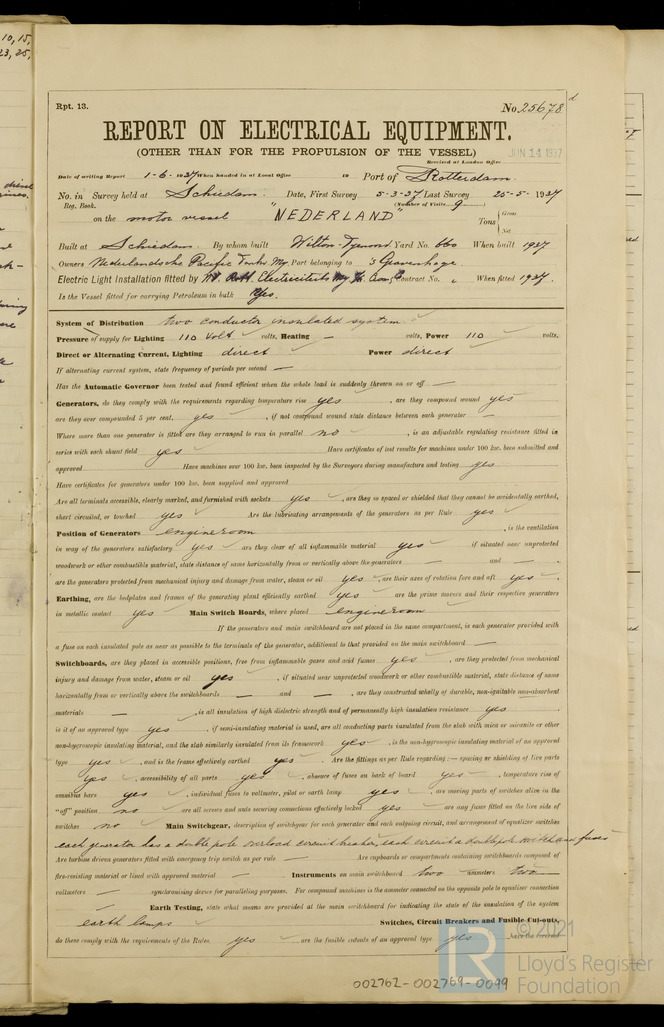 10, 15,
23, 25,
Rpt. 13.
No. 25678 d
REPORT ON ELECTRICAL EQUIPMENT.
(OTHER THAN FOR THE PROPULSION OF THE VESSEL)
Received at London Office
JUN 14 1937
Date of writing Report 1-6-1937 When handed in at Local Office 19 Port of Rotterdam
No. in Survey held at Schiedam. Date, First Survey 5-3-37 Last Survey 25-5-1937
Reg. Book. (Number of Visits 9
on the motor vessel "NEDERLAND" Tons { Gross
Net
Built at Schiedam. By whom built Wilton-Fyenoord Yard No. 660 When built 1937
Owners Nederlandsche Pacific Tank My. Port belonging to 's Gravenhage
Electric Light Installation fitted by Electriciteits My Contract No. " When fitted 1937.
Is the Vessel fitted for carrying Petroleum in bulk Yes.
System of Distribution two conductor insulated system.
Pressure of supply for Lighting 110 Volt volts, Heating — volts, Power 110 volts.
Direct or Alternating Current, Lighting direct Power direct
If alternating current system, state frequency of periods per second —
Has the Automatic Governor been tested and found efficient when the whole load is suddenly thrown on or off —
Generators, do they comply with the requirements regarding temperature rise yes, are they compound wound yes
are they over compounded 5 per cent. yes, if not compound wound state distance between each generator —
Where more than one generator is fitted are they arranged to run in parallel no, is an adjustable regulating resistance fitted in
series with each shunt field yes Have certificates of test results for machines under 100 kw. been submitted and
approved Have machines over 100 kw. been inspected by the Surveyors during manufacture and testing yes
Have certificates for generators under 100 kw. been supplied and approved
Are all terminals accessible, clearly marked, and furnished with sockets yes, are they so spaced or shielded that they cannot be accidentally earthed,
short circuited, or touched yes Are the lubricating arrangements of the generators as per Rule yes
Position of Generators engineroom, is the ventilation
in way of the generators satisfactory yes are they clear of all inflammable material yes if situated near unprotected
woodwork or other combustible material, state distance of same horizontally from or vertically above the generators — and —
are the generators protected from mechanical injury and damage from water, steam or oil yes, are their axes of rotation fore and aft yes.
Earthing, are the bedplates and frames of the generating plant efficiently earthed yes are the prime movers and their respective generators
in metallic contact yes Main Switch Boards, where placed engineroom
If the generators and main switchboard are not placed in the same compartment, is each generator provided with
a fuse on each insulated pole as near as possible to the terminals of the generator, additional to that provided on the main switchboard —
Switchboards, are they placed in accessible positions, free from inflammable gases and acid fumes yes, are they protected from mechanical
injury and damage from water, steam or oil yes, if situated near unprotected woodwork or other combustible material, state distance of same
horizontally from or vertically above the switchboards — and —, are they constructed wholly of durable, non-ignitable non-absorbent
materials —, is all insulation of high dielectric strength and of permanently high insulation resistance yes
is it of an approved type yes, if semi-insulating material is used, are all conducting parts insulated from the slab with mica or micanite or other
non-hygroscopic insulating material, and the slab similarly insulated from its framework yes, is the non-hygroscopic insulating material of an approved
type yes, and is the frame effectively earthed yes Are the fittings as per Rule regarding:— spacing or shielding of live parts
yes, accessibility of all parts yes, absence of fuses on back of board yes, temperature rise of
omnibus bars yes, individual fuses to voltmeter, pilot or earth lamp yes, are moving parts of switches alive in the
"off" position no are all screws and nuts securing connections effectively locked yes are any fuses fitted on the live side of
switches no Main Switchgear, description of switchgear for each generator and each outgoing circuit, and arrangement of equalizer switches
each generator has a double pole overload circuit breaker, each circuit a double pole switch and fuses
Are turbine driven generators fitted with emergency trip switch as per rule — Are cupboards or compartments containing switchboards composed of
fire-resisting material or lined with approved material — Instruments on main switchboard two ammeters two
voltmeters — synchronising device for paralleling purposes. For compound machines is the ammeter connected on the opposite pole to equaliser connection
— Earth Testing, state what means are provided at the main switchboard for indicating the state of the insulation of the system
earth lamps Switches, Circuit Breakers and Fusible Cut-outs,
do these comply with the requirements of the Rules yes are the fusible cutouts of an approved type yes have the
002762-002769-0099
© 2021
LR
Lloyd's Register
Foundation